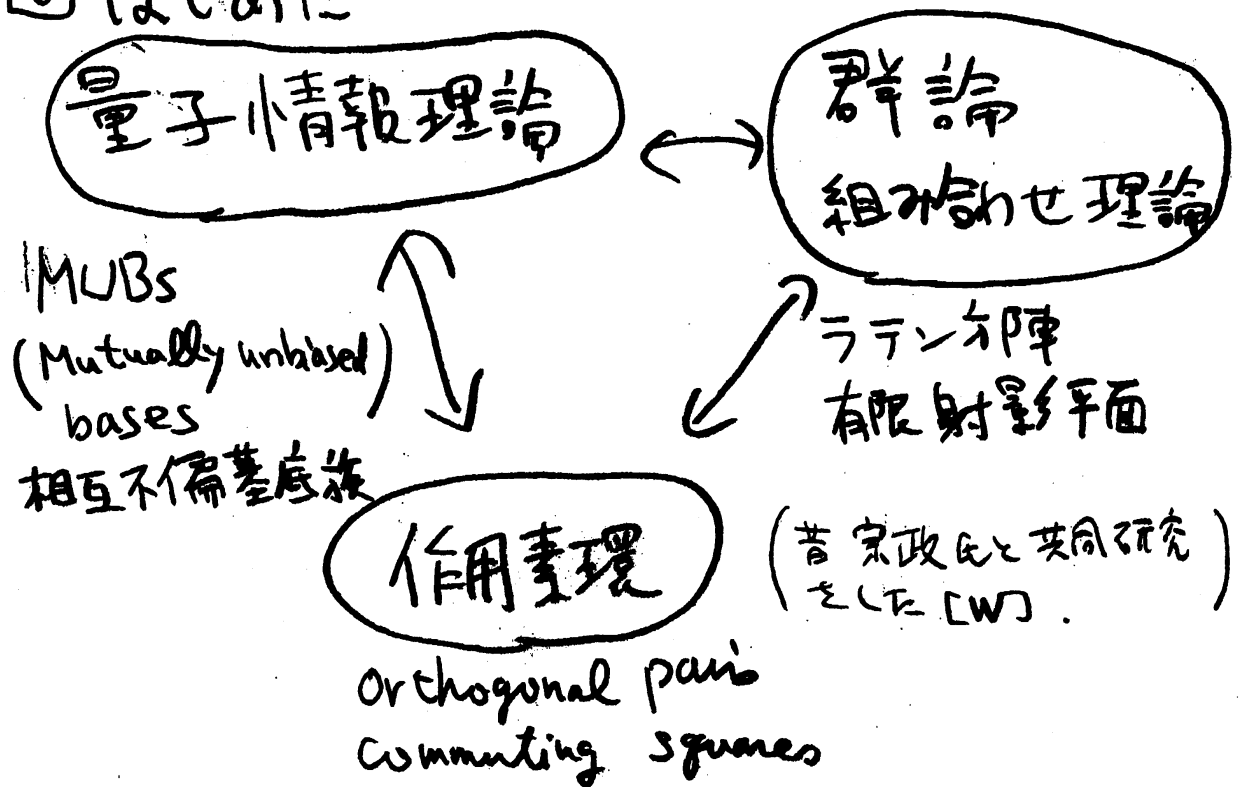 はじめに
量子情報理論
群論
組み合わせ理論
MUBs
(Mutually unbiased
bases)
相互不偏基底族
ラテン方陣
有限射影平面
作用素環
(昔 宗政氏と共同研究
をした [W].)
Orthogonal pairs
commuting squares